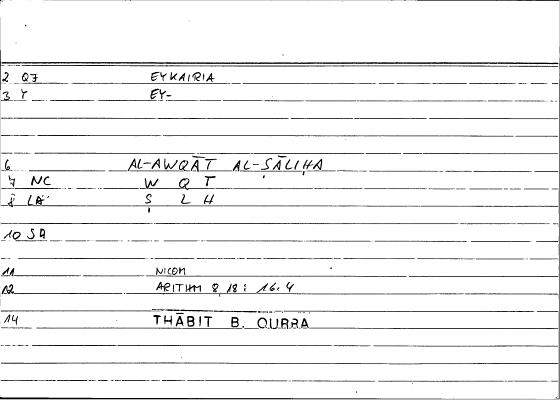 2 Q7 EYKAIRIA
3 Y EY-
6 AL-AWQĀT AL-ṢĀLIḤA
7 NC W Q T
8 LA Ṣ L Ḥ
10 SA
11 NICOM
12 ARITHM 8,18 : 16.4
14 THĀBIT B. QURRA